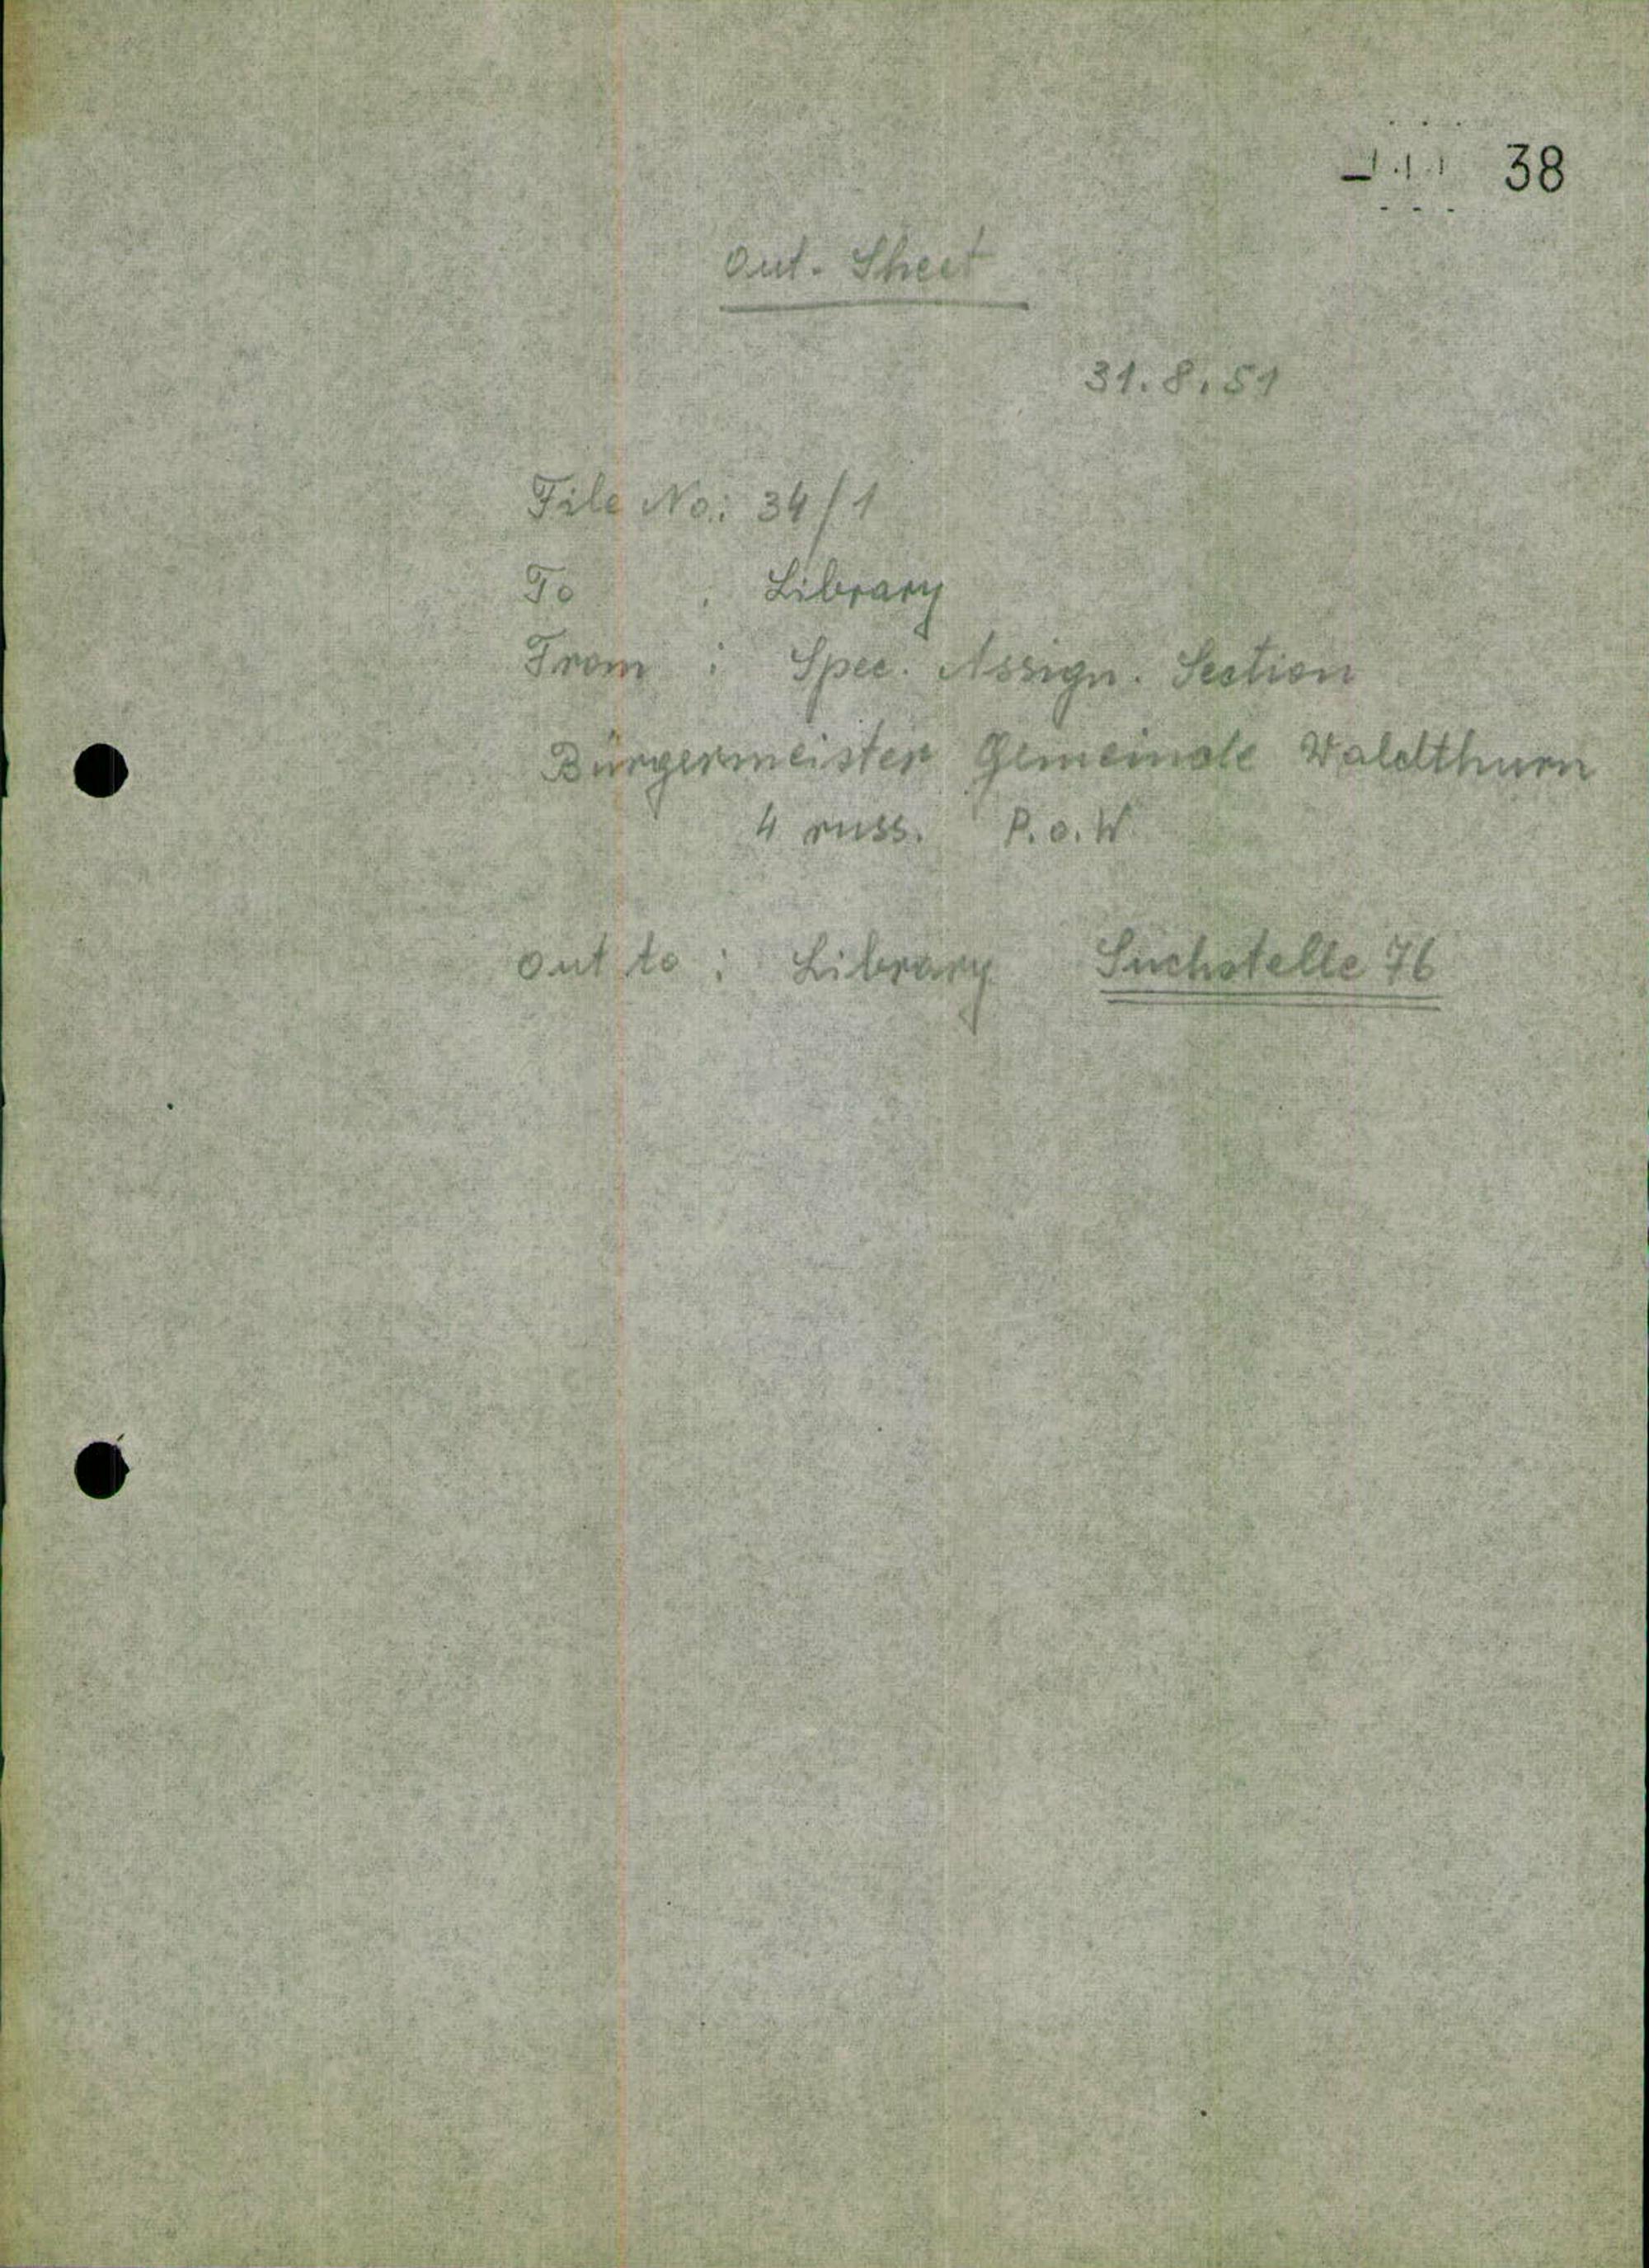 38
Out. Sheet
31.8.51
File No.: 34/1
To : Library
From : Spec. Assign. Section
Bürgermeister Gemeinde Waldthurn
4 russ. P.o.W.
Out to : Library Suchstelle 76